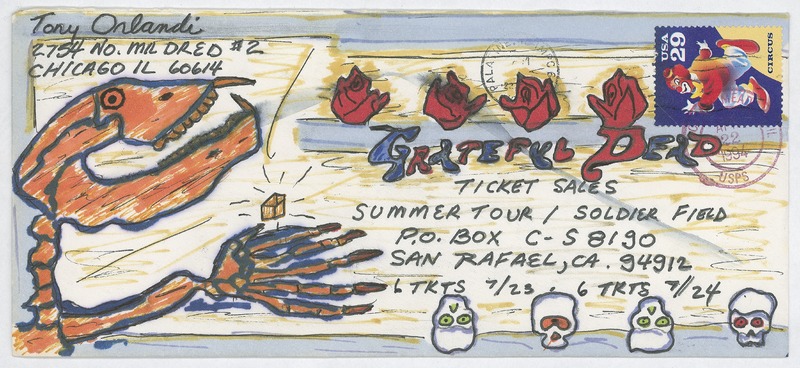 Tony Orlandi
2754 NO. MILDRED #2
CHICAGO IL 60614
USA 29
CIRCUS
22
1994
USPS
GRATEFUL DEAD
TICKET SALES
SUMMER TOUR / SOLDIER FIELD
P.O. BOX C-S 8190
SAN RAFAEL, CA. 94912
6 TKTS 7/23 · 6 TKTS 7/24